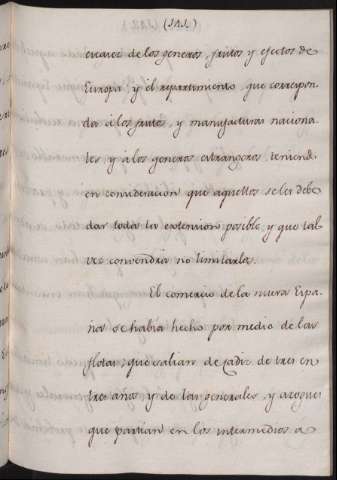 (212)
de los generos, frutos y efectos de
Europa, y el repartimiento, que correspon-
da á los frutos, y manufacturas naciona-
les y á los generos estrangeros, teniend.
en consideracion que aquellos se les debe
dar toda la extension posible, y que tal
vez convendria no limitarla.
El comercio de la nueva Espa-
ña se habia hecho por medio de las
flotas, que salian de Cadiz de tres en
tres años, y de las generales, y azogues
que partian en los intermedios a